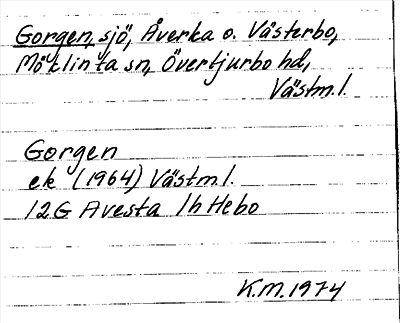 Gorgen, sjö, Åverka o. Västerbo,
Möklinta sn, Övertjurbo hd,
Västm.l.
Gorgen
ek (1964) Västm.l.
12G Avesta 1h Hebo
K.M. 1974